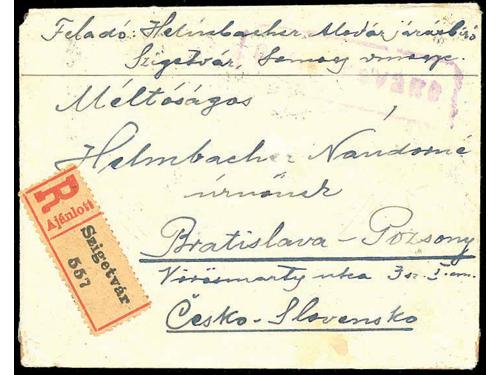 Feladó: Helmbacher Aladár járásbíró
Szigetvár. Somogy vmegye.
Méltóságos
Helmbacher Nándorné
úrnőnek
Bratislava - Pozsony
Vörösmarty utca 3 sz. I. em.
Česko-Slovensko
R
Ajánlott
Szigetvár
557